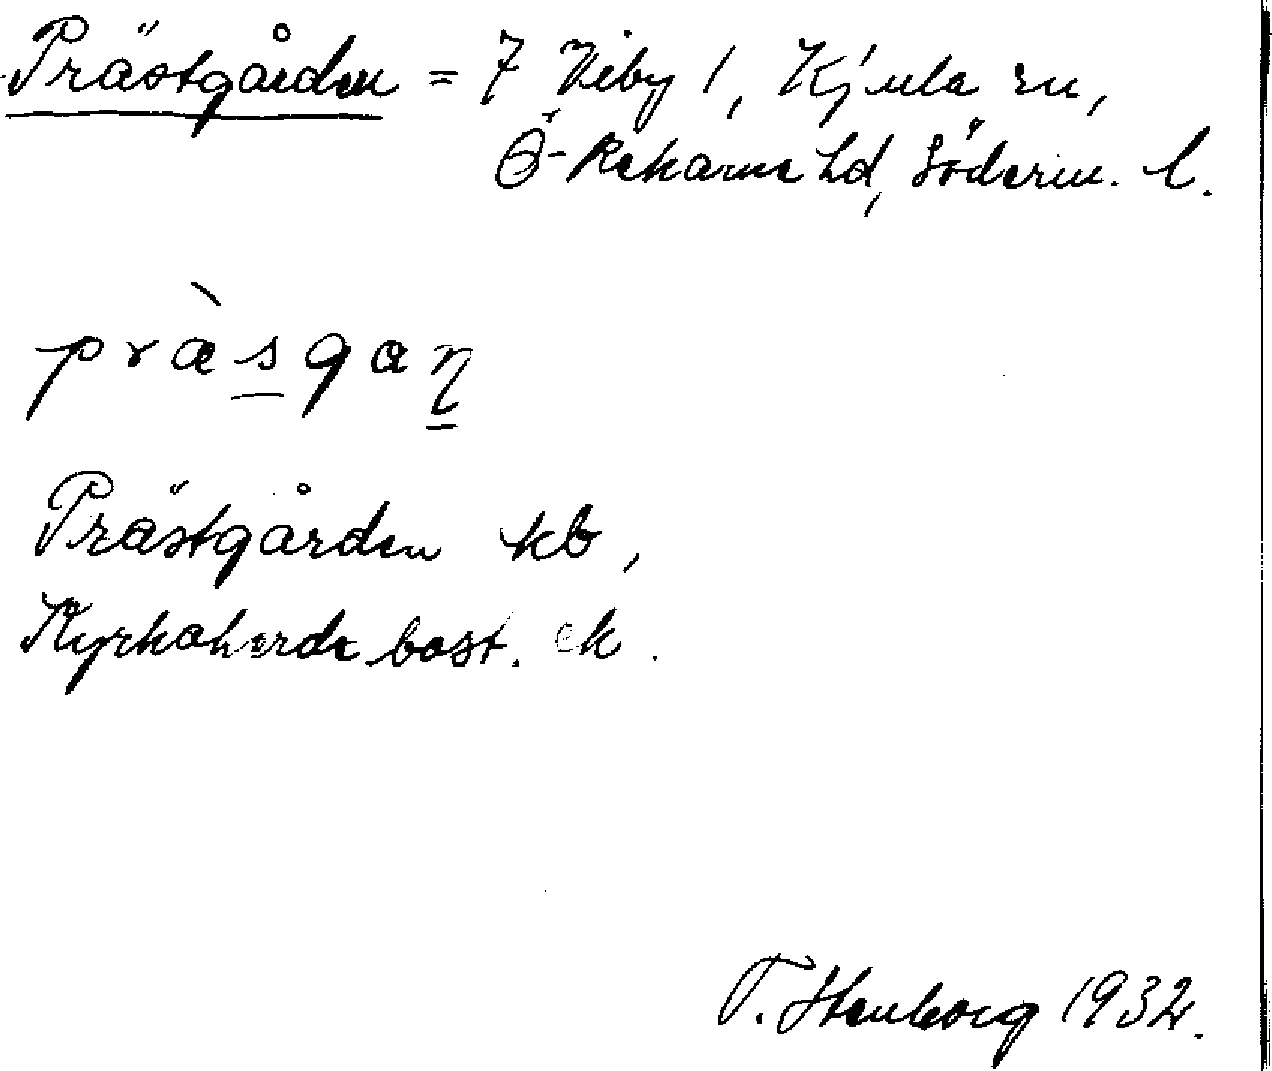 Prästgården = 7 Viby 1, Kjula sn,
Ö-Rekarne hd, Söderm. l.
præ̀sgaη
Prästgården kb,
Kyrkoherdebost. ek.
T. Stenborg 1932.